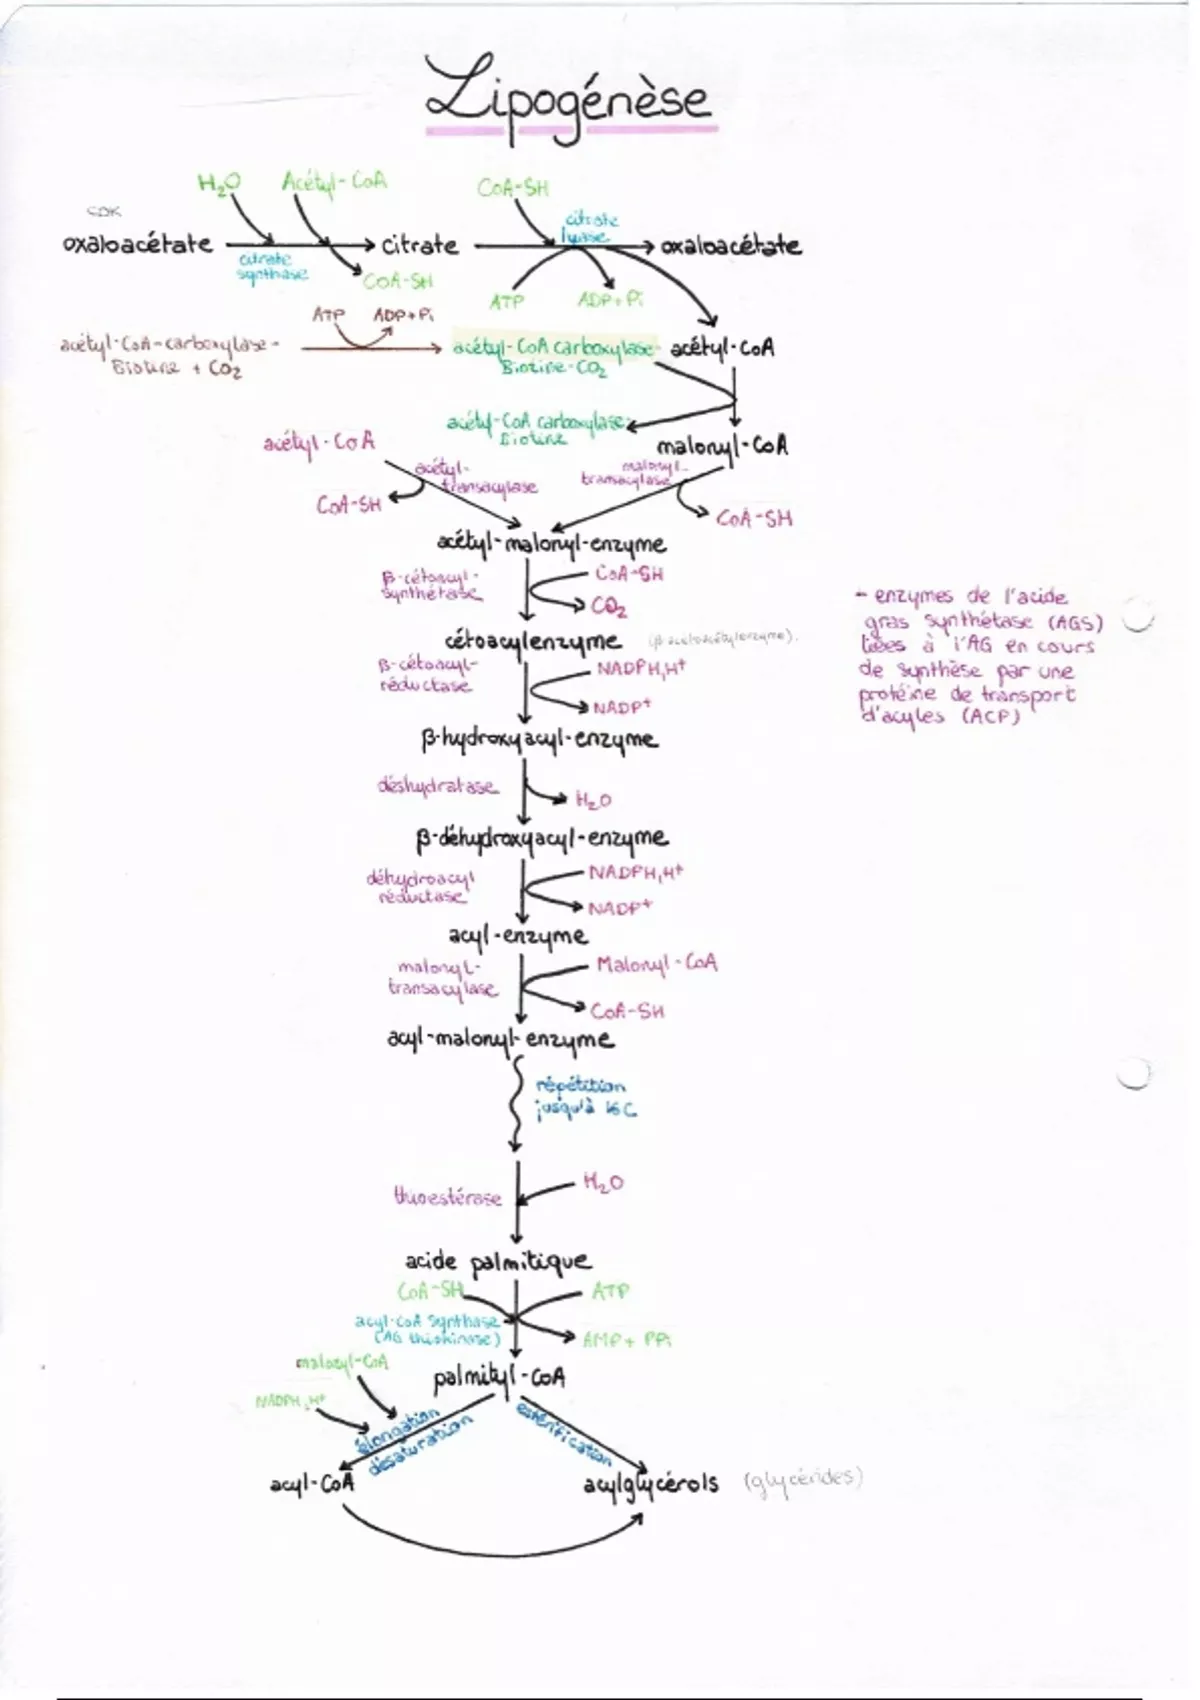 Lipogénèse
H₂O Acétyl-CoA CoA-SH
citrate
lyase
oxaloacétate citrate oxaloacétate
citrate
synthase
CoA-SH
ATP ADP+Pi
ATP ADP+Pi
acétyl-CoA-carboxylase-
Biotine + CO₂
acétyl-CoA carboxylase-
Biotine-CO₂
acétyl-CoA
acétyl-CoA carboxylase-
Biotine
malonyl-CoA
acétyl-CoA
acétyl-
transacylase
malonyl-
transacylase
CoA-SH
CoA-SH
acétyl-malonyl-enzyme
β-cétoacyl-
synthétase
CoA-SH
CO₂
cétoacylenzyme
β-cétoacyl-
réductase
NADPH,H⁺
NADP⁺
- enzymes de l'acide
gras synthétase (AGS)
liées à l'AG en cours
de synthèse par une
protéine de transport
d'acyles (ACP)
β-hydroxyacyl-enzyme
déshydratase
H₂O
β-déhydroxyacyl-enzyme
déhydroacyl
réductase
NADPH,H⁺
NADP⁺
acyl-enzyme
malonyl-
transacylase
Malonyl-CoA
CoA-SH
acyl-malonyl-enzyme
répétition
jusqu'à 16C
thioestérase
H₂O
acide palmitique
CoA-SH ATP
acyl-CoA synthase
(AG thiokinase)
AMP + PPi
malonyl-CoA
palmityl-CoA
NADPH,H⁺
élongation
désaturation
estérification
acyl-CoA acylglycérols (glycérides)